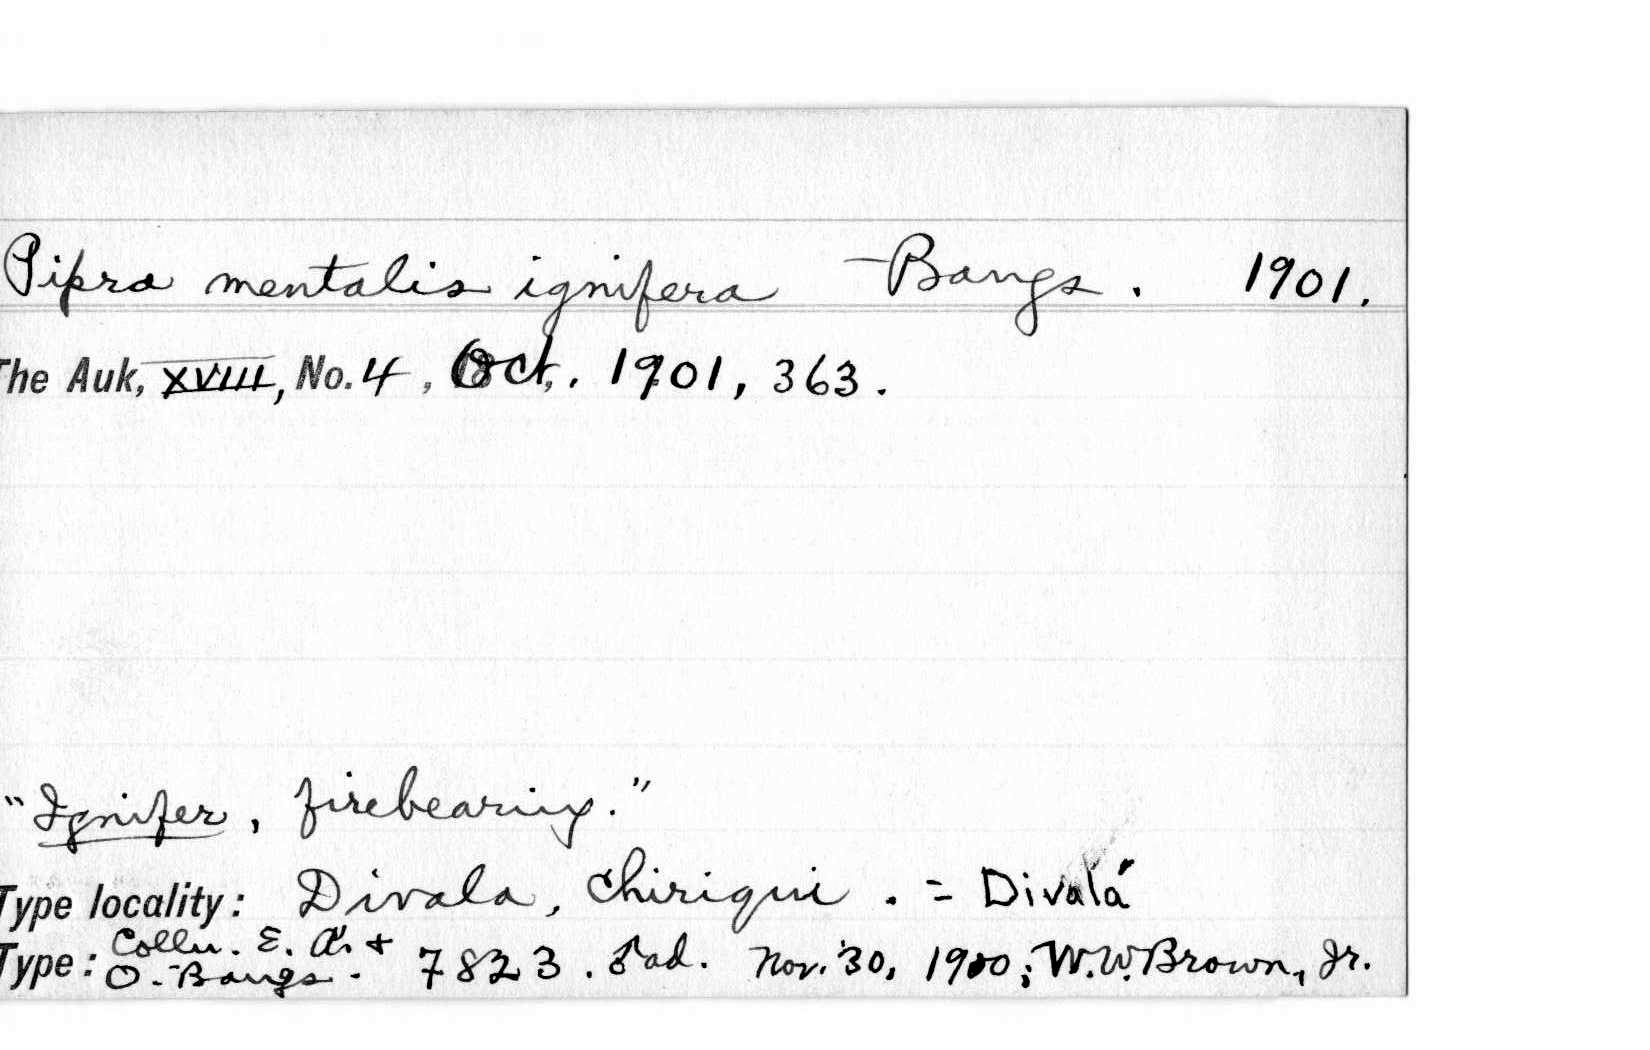 Pipra mentalis ignifera Bangs. 1901.
The Auk, XVIII, No. 4, Oct. 1901, 363.
"Ignifer, firebearing."
Type locality: Divala, Chiriqui. = Divalá
Type: Colln. E. A. + O. Bangs. 7823. ♂ ad. Nov. 30, 1900; W.W. Brown, Jr.